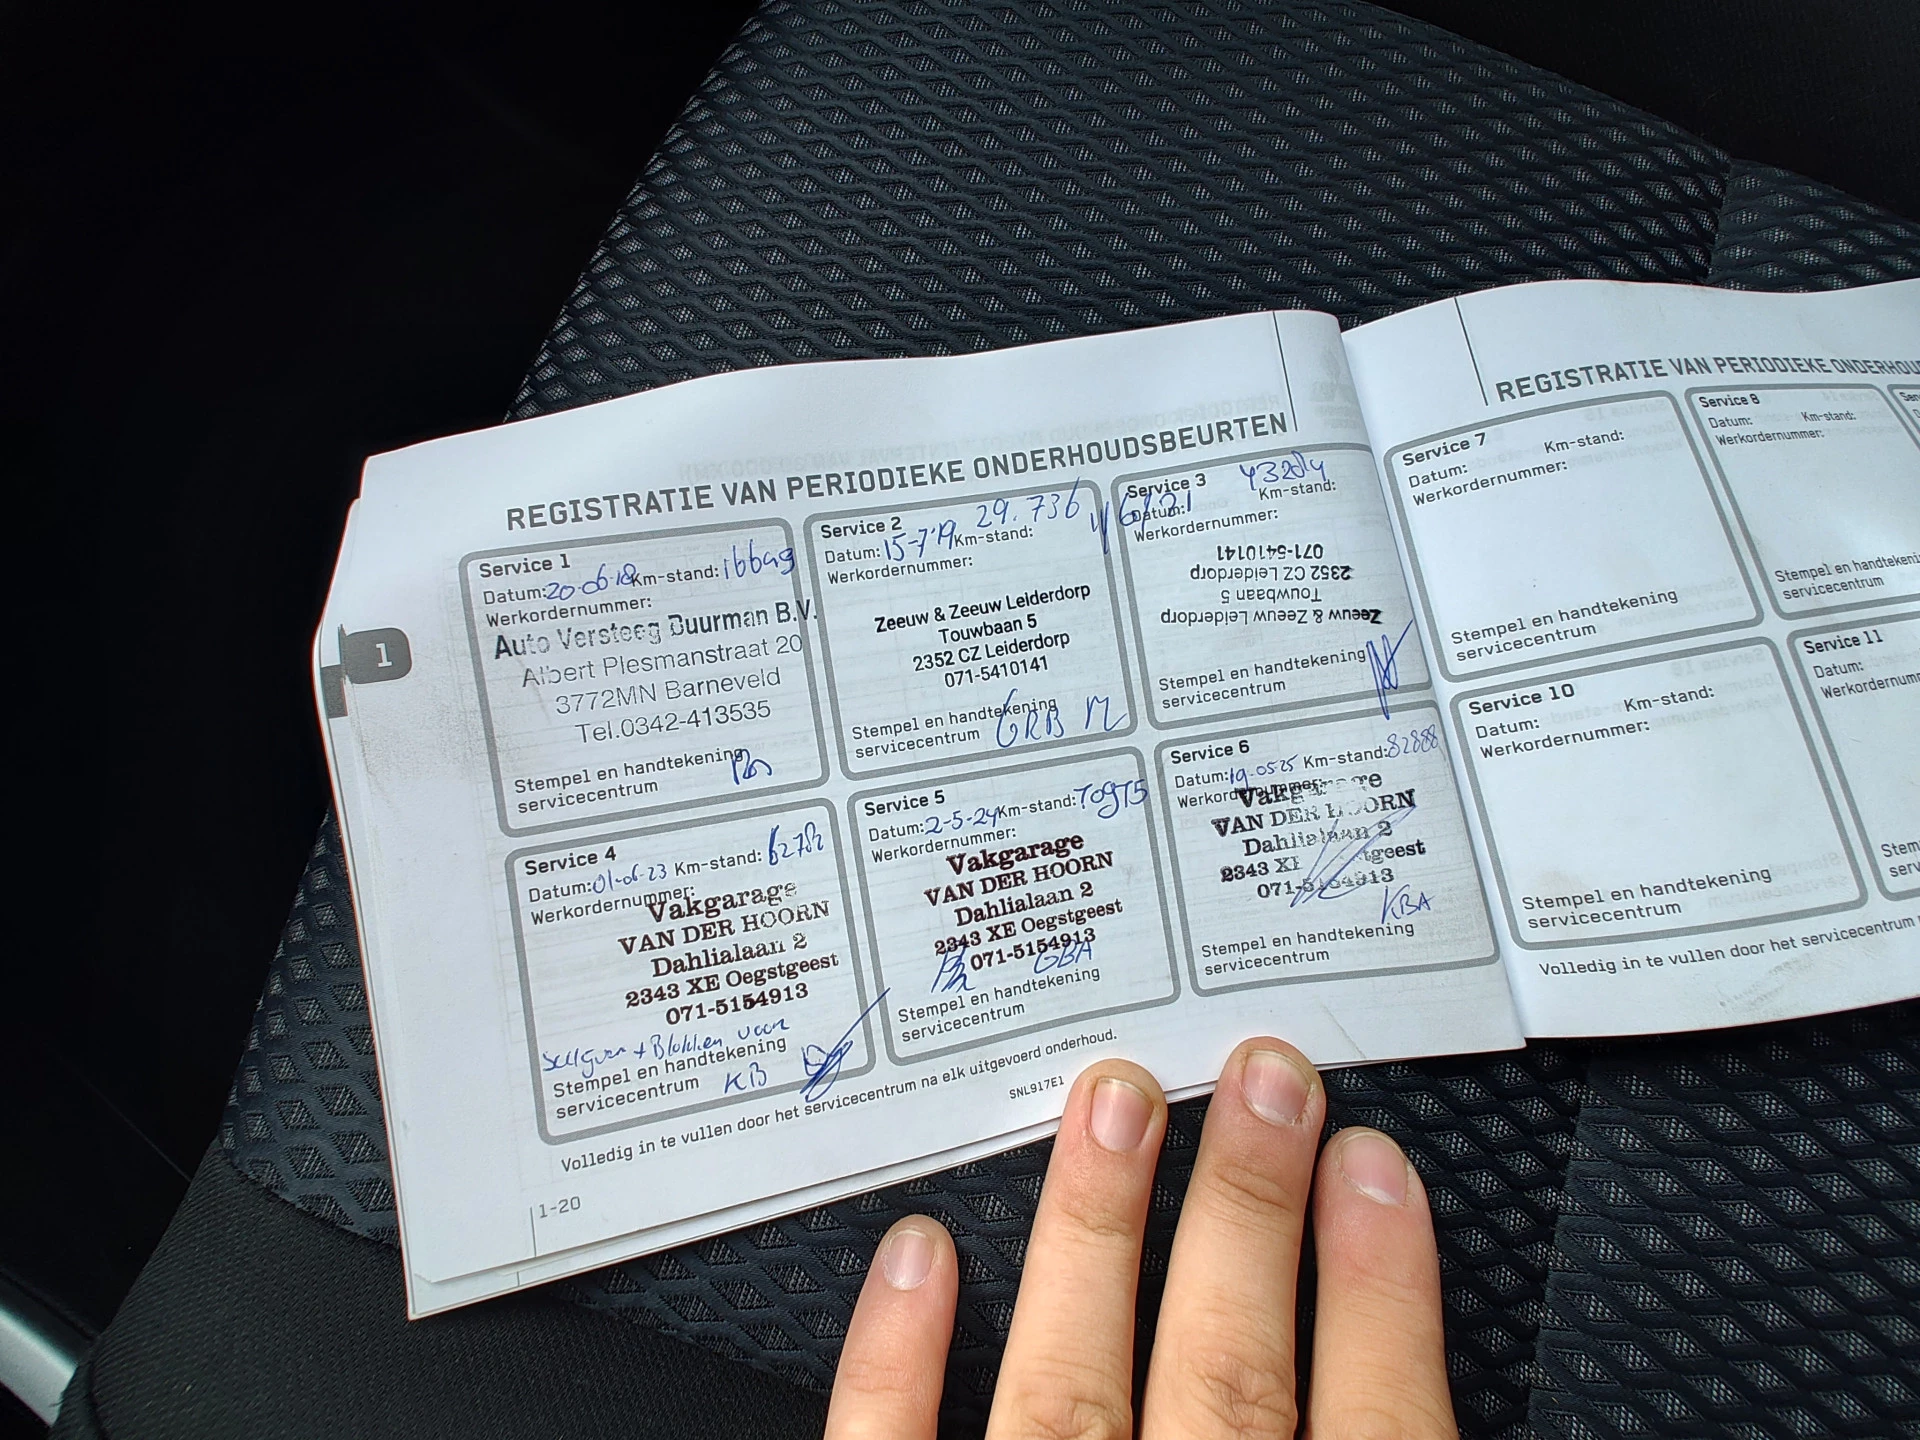 REGISTRATIE VAN PERIODIEKE ONDERHOUDSBEURTEN
1
Service 1
Datum: 20-06-18 Km-stand: 16649
Werkordernummer:
Auto Versteeg Buurman B.V.
Albert Plesmanstraat 20
3772MN Barneveld
Tel.0342-413535
Stempel en handtekening
servicecentrum
Service 2
29.736
Datum: 15-7-19 Km-stand:
Werkordernummer:
Zeeuw & Zeeuw Leiderdorp
Touwbaan 5
2352 CZ Leiderdorp
071-5410141
Stempel en handtekening
servicecentrum GRB
Service 3
Datum: Km-stand:
Werkordernummer:
Zeeuw & Zeeuw Leiderdorp
Touwbaan 5
2352 CZ Leiderdorp
071-5410141
Stempel en handtekening
servicecentrum
Service 4
Datum: 01-06-23 Km-stand: 62782
Werkordernummer:
Vakgarage
VAN DER HOORN
Dahlialaan 2
2343 XE Oegstgeest
071-5154913
+ Blokken voor
Stempel en handtekening
servicecentrum KB
Service 5
Datum: 2-5-24 Km-stand: 70975
Werkordernummer:
Vakgarage
VAN DER HOORN
Dahlialaan 2
2343 XE Oegstgeest
071-5154913
GBA
Stempel en handtekening
servicecentrum
Service 6
Datum: 19-05-25 Km-stand: 82888
Werkordernummer:
Vakgarage
VAN DER HOORN
Dahlialaan 2
2343 XE Oegstgeest
071-5154913
KBA
Stempel en handtekening
servicecentrum
Volledig in te vullen door het servicecentrum na elk uitgevoerd onderhoud.
SNL917E1
1-20
REGISTRATIE VAN PERIODIEKE
Service 7
Datum: Km-stand:
Werkordernummer:
Stempel en handtekening
servicecentrum
Service 8
Datum: Km-stand:
Werkordernummer:
Stempel en
servicecentrum
Service 10
Datum: Km-stand:
Werkordernummer:
Stempel en handtekening
servicecentrum
Service 11
Datum:
Volledig in te vullen door het servicecentrum